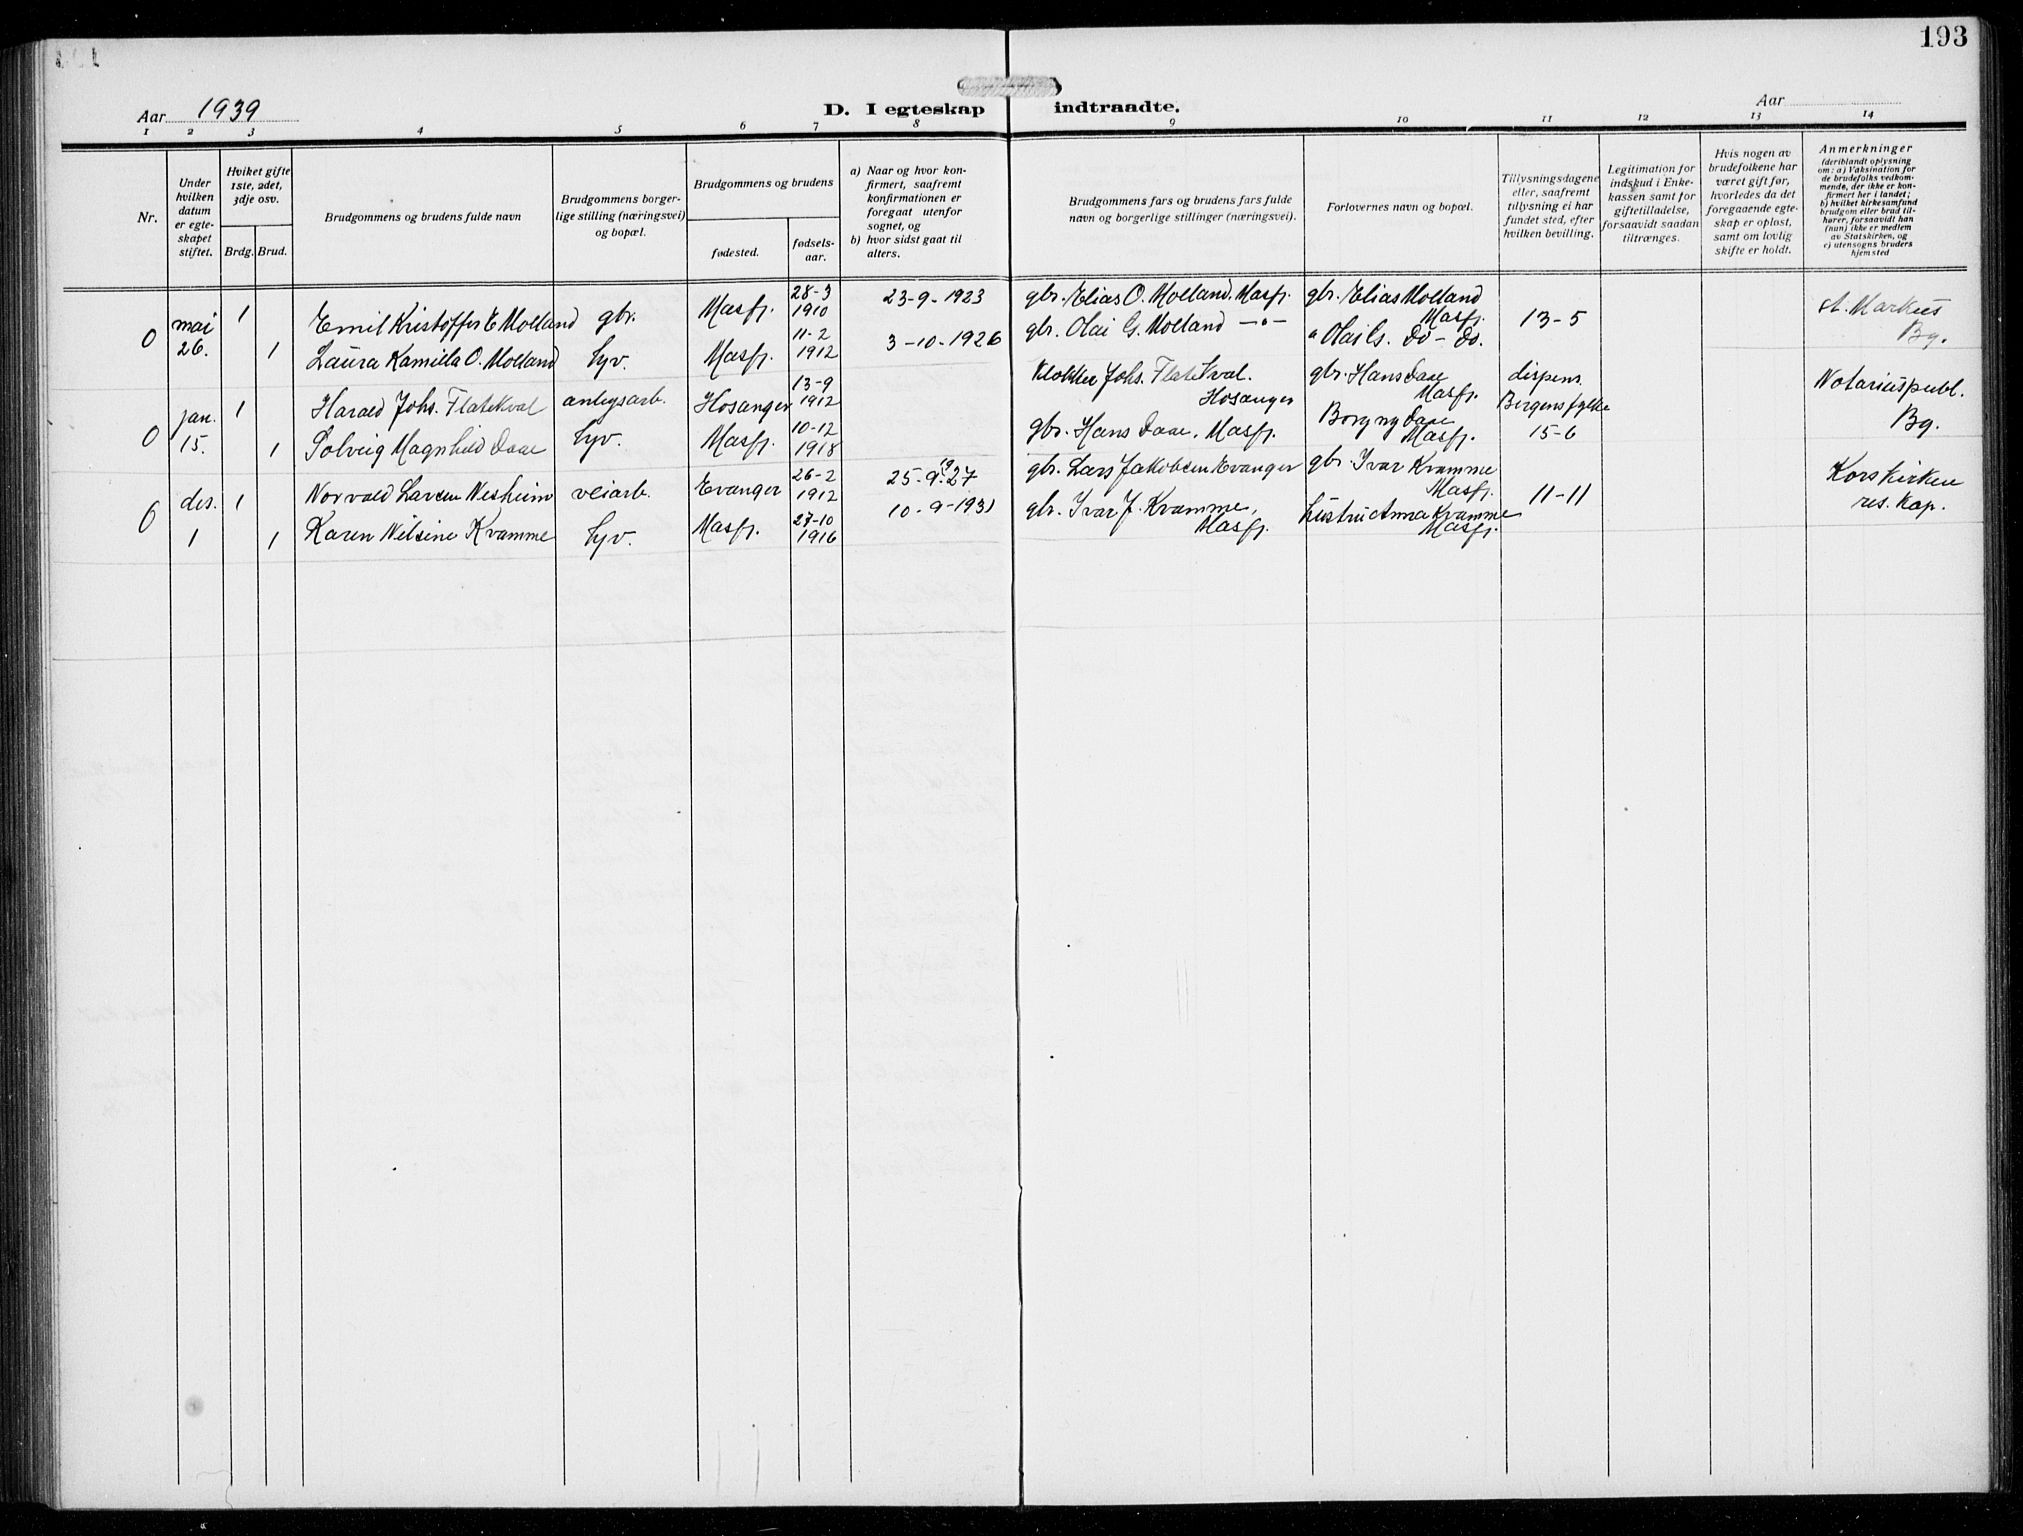 193
Aar 1939
D. I egteskap indtraadte.
Aar
1 2 3 4 5 6 7 8 9 10 11 12 13 14
Nr.
Under hvilken datum er egte-skapet stiftet.
Hviket gifte 1ste, 2det, 3dje osv.
Brdg. Brud.
Brudgommens og brudens fulde navn
Brudgommens borger-lige stilling (næringsvei) og bopæl.
Brudgommens og brudens
fødested.
fødsels-aar.
a) Naar og hvor kon-firmert, saafremt konfirmationen er foregaat utenfor sognet, og
b) hvor sidst gaat til alters.
Brudgommens fars og brudens fars fulde navn og borgerlige stillinger (næringsvei).
Forlovernes navn og bopæl.
Tillysningsdagene eller, saafremt tillysning ei har fundet sted, efter hvilken bevilling.
Legitimation for indskud i Enke-kassen samt for giftetilladelse, forsaavidt saadan tiltrænges.
Hvis nogen av brudefolkene har været gift før, hvorledes da det foregaaende egte-skap er opløst, samt om lovlig skifte er holdt.
Anmerkninger (deriblandt oplysning om: a) Vaksination for de brudefolks vedkom-mende, der ikke er kon-firmert her i landet; b) hvilket kirkesamfund brudgom eller brud til-hører, forsaavidt han (hun) ikke er medlem av Statskirken, og c) utensogns bruders hjemsted
0 mai 26. 1 Emil Kristoffer E Molland gbr. Masfj. 28-3 1910 23-9-1923 gbr. Elias O. Molland. Masfj. gbr. Elias Molland Masfj. 13-5 st. Markus Bg.
1 Laura Kamilla O. Molland Masfj. 11-2 1912 3-10-1926 gbr. Olai G. Molland —"— " Olai G. Do - Do.
0 jan. 15. 1 Harald Johs. Flatekval anlegsarb. Hosanger 13-9 1912 Klokker Johs. Flatekval. Hosanger gbr. Hans Daae Masfj. dispens. Bergens fylke 15-6 Notariuspubl. Bg.
1 Solveig Magnhild Daae Masfj. 10-12 1918 gbr. Hans Daae, Masfj. Borgny Daae Masfj.
0 des. 1 1 Norvald Larsen Nesheim veiarb. Evanger 26-2 1912 25-9-1927 gbr. Lars Jakobsen Evanger gbr. Ivar Kvamme Masfj. 11-11 Korskirken res. kap.
1 Karen Nilsine Kvamme Masfj. 27-10 1916 10-9-1931 gbr. Ivar J. Kvamme, Masfj. hustru Anna Kvamme Masfj.